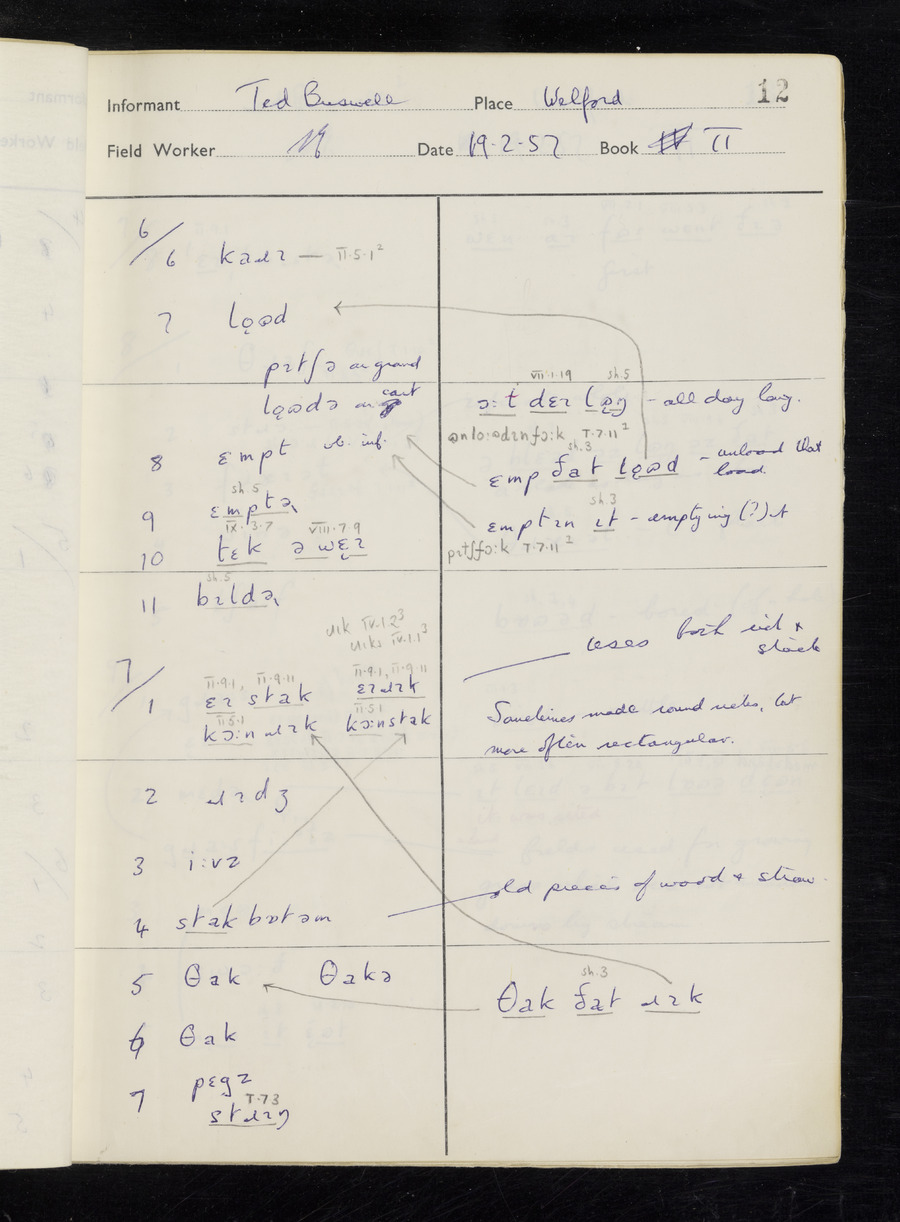 12
Informant Ted Buswell Place Welford
Field Worker Date 19-2-57 Book II
6/6 kaɹɪ — II·5·1²
7 lo̜ʊd
pɪtʃə on ground
lo̜ʊdə on cart
ɔ:t dɛɪ lɒŋ – all day long.
VII·1·19 sh.5
8 ɛmpt vb. inf.
ʊnlo:ʊdɪnfɔ:k T·7·11²
sh.3
ɛmp ðat lo̜ʊd – unload that load.
sh.5
9 ɛmptə
sh.3
ɛmptɪn ɪt – emptying (?) it
IX·3·7 VIII·7·9
10 tɛk ə wɛɪ
pɪtʃfɔ:k T·7·11²
sh.5
11 bɪldə
ɹɪk IV·1·2³
ɹɪks IV·1·1³
uses both rick & stack
7/1
II·9·1, II·9·11 II·9·1, II·9·11
ɛɪ stak ɛɪ ɹɪk
II·5·1 II·5·1
kɔ:n ɹɪk kɔ:nstak
Sometimes made round ricks, but
more often rectangular.
2 ɹɪdʒ
3 i:vz
4 stak bɒtəm old pieces of wood & straw.
5 θak θakə
sh.3
θak ðat ɹɪk
6 θak
7 pɛgz
T·7·3
stɹɪŋ